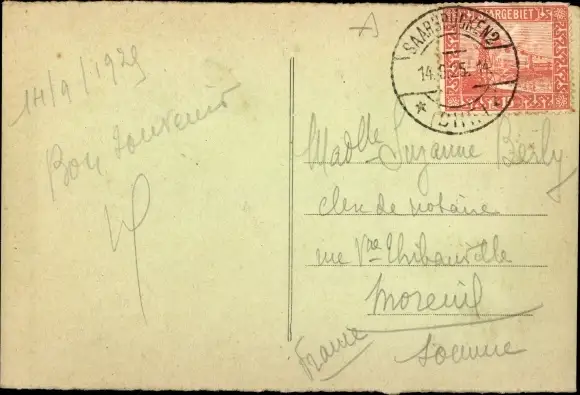 14/9/1925
Bon souvenir
SAARGEBIET
SAARBRÜCKEN 2
14.9.25.
Madlle Suzanne
clerc de notaire
rue Vve Thibauville
Moreuil
France
Somme